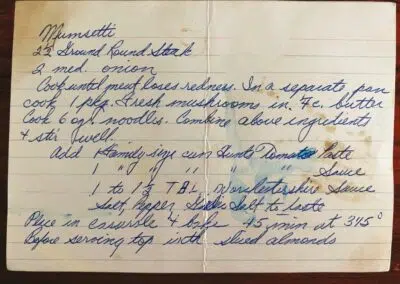 Mumsetti
2# Ground Round Steak
2 med. onion
Cook until meat loses redness. In a separate pan
cook 1 pkg. fresh mushrooms in c. butter
Cook 6 oz. noodles. Combine above ingredients
& stir well.
Add 1 family size can Hunts Tomato Paste
1 " " " " " Sauce
1 to 1½ TBL. Worchestershire Sauce
Salt, Pepper, Salt to taste
Place in casarole & bake 45 min at 345°
Before serving top with slied almonds